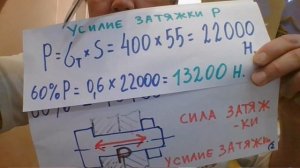 УСИЛИЕ ЗАТЯЖКИ P
P=σт×S=400×55=22000
Н.
60%P=0,6×22000=13200 Н.
СИЛА ЗАТЯЖ
-КИ
УСИЛИЕ ЗАТЯЖКИ